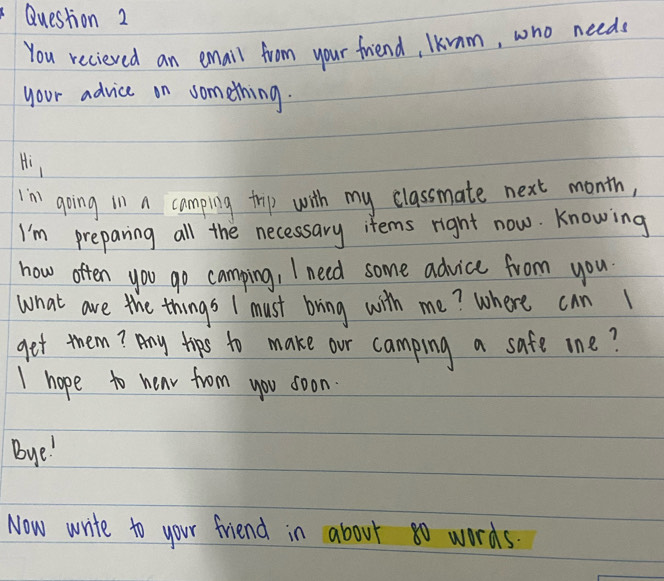 Question 2
You recieved an email from your friend, Ikram, who needs
your advice on something.
Hi,
I'm going in a camping trip with my classmate next month,
I'm preparing all the necessary items right now. Knowing
how often you go camping, I need some advice from you.
What are the things I must bring with me? Where can I
get them? Any tips to make our camping a safe one?
I hope to hear from you soon.
Bye!
Now write to your friend in about 80 words.